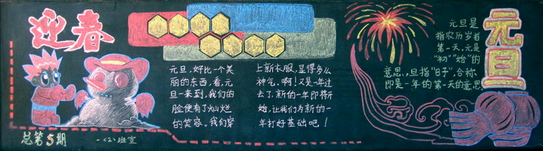 迎春
元旦，好比一个美
丽的东西，看，元
旦一来到，我们的
脸便有了如灿烂
的笑容，我们穿
上新衣服，显得多么
神气，啊！又是一年过
去了，新的一年即将开
始，让我们为新的一
年打好基础吧！
元旦是
指农历岁首
第一天，元是
"初""始"的
意思，旦指"日子"，合称
即是一年的第一天的意思
元旦
总第5期
一〈2〉班宣